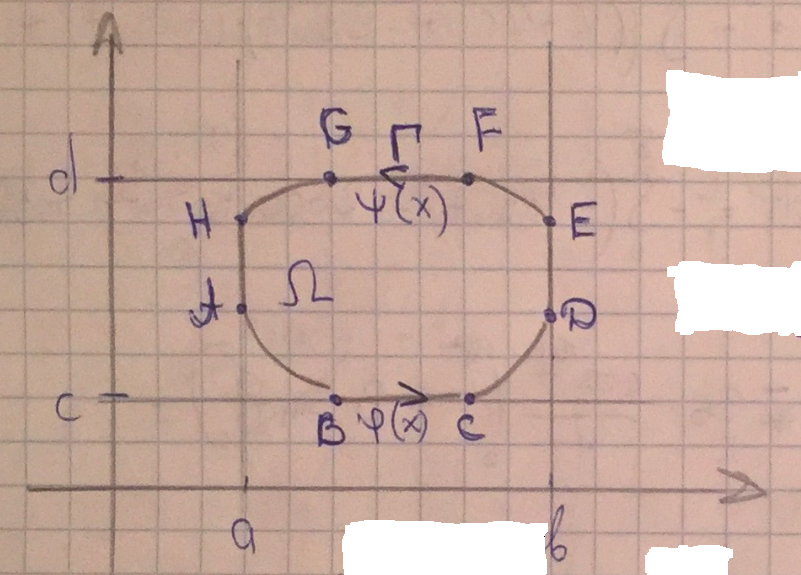 G Γ F
d
ψ(x)
H E
A Ω D
c
B φ(x) C
a b